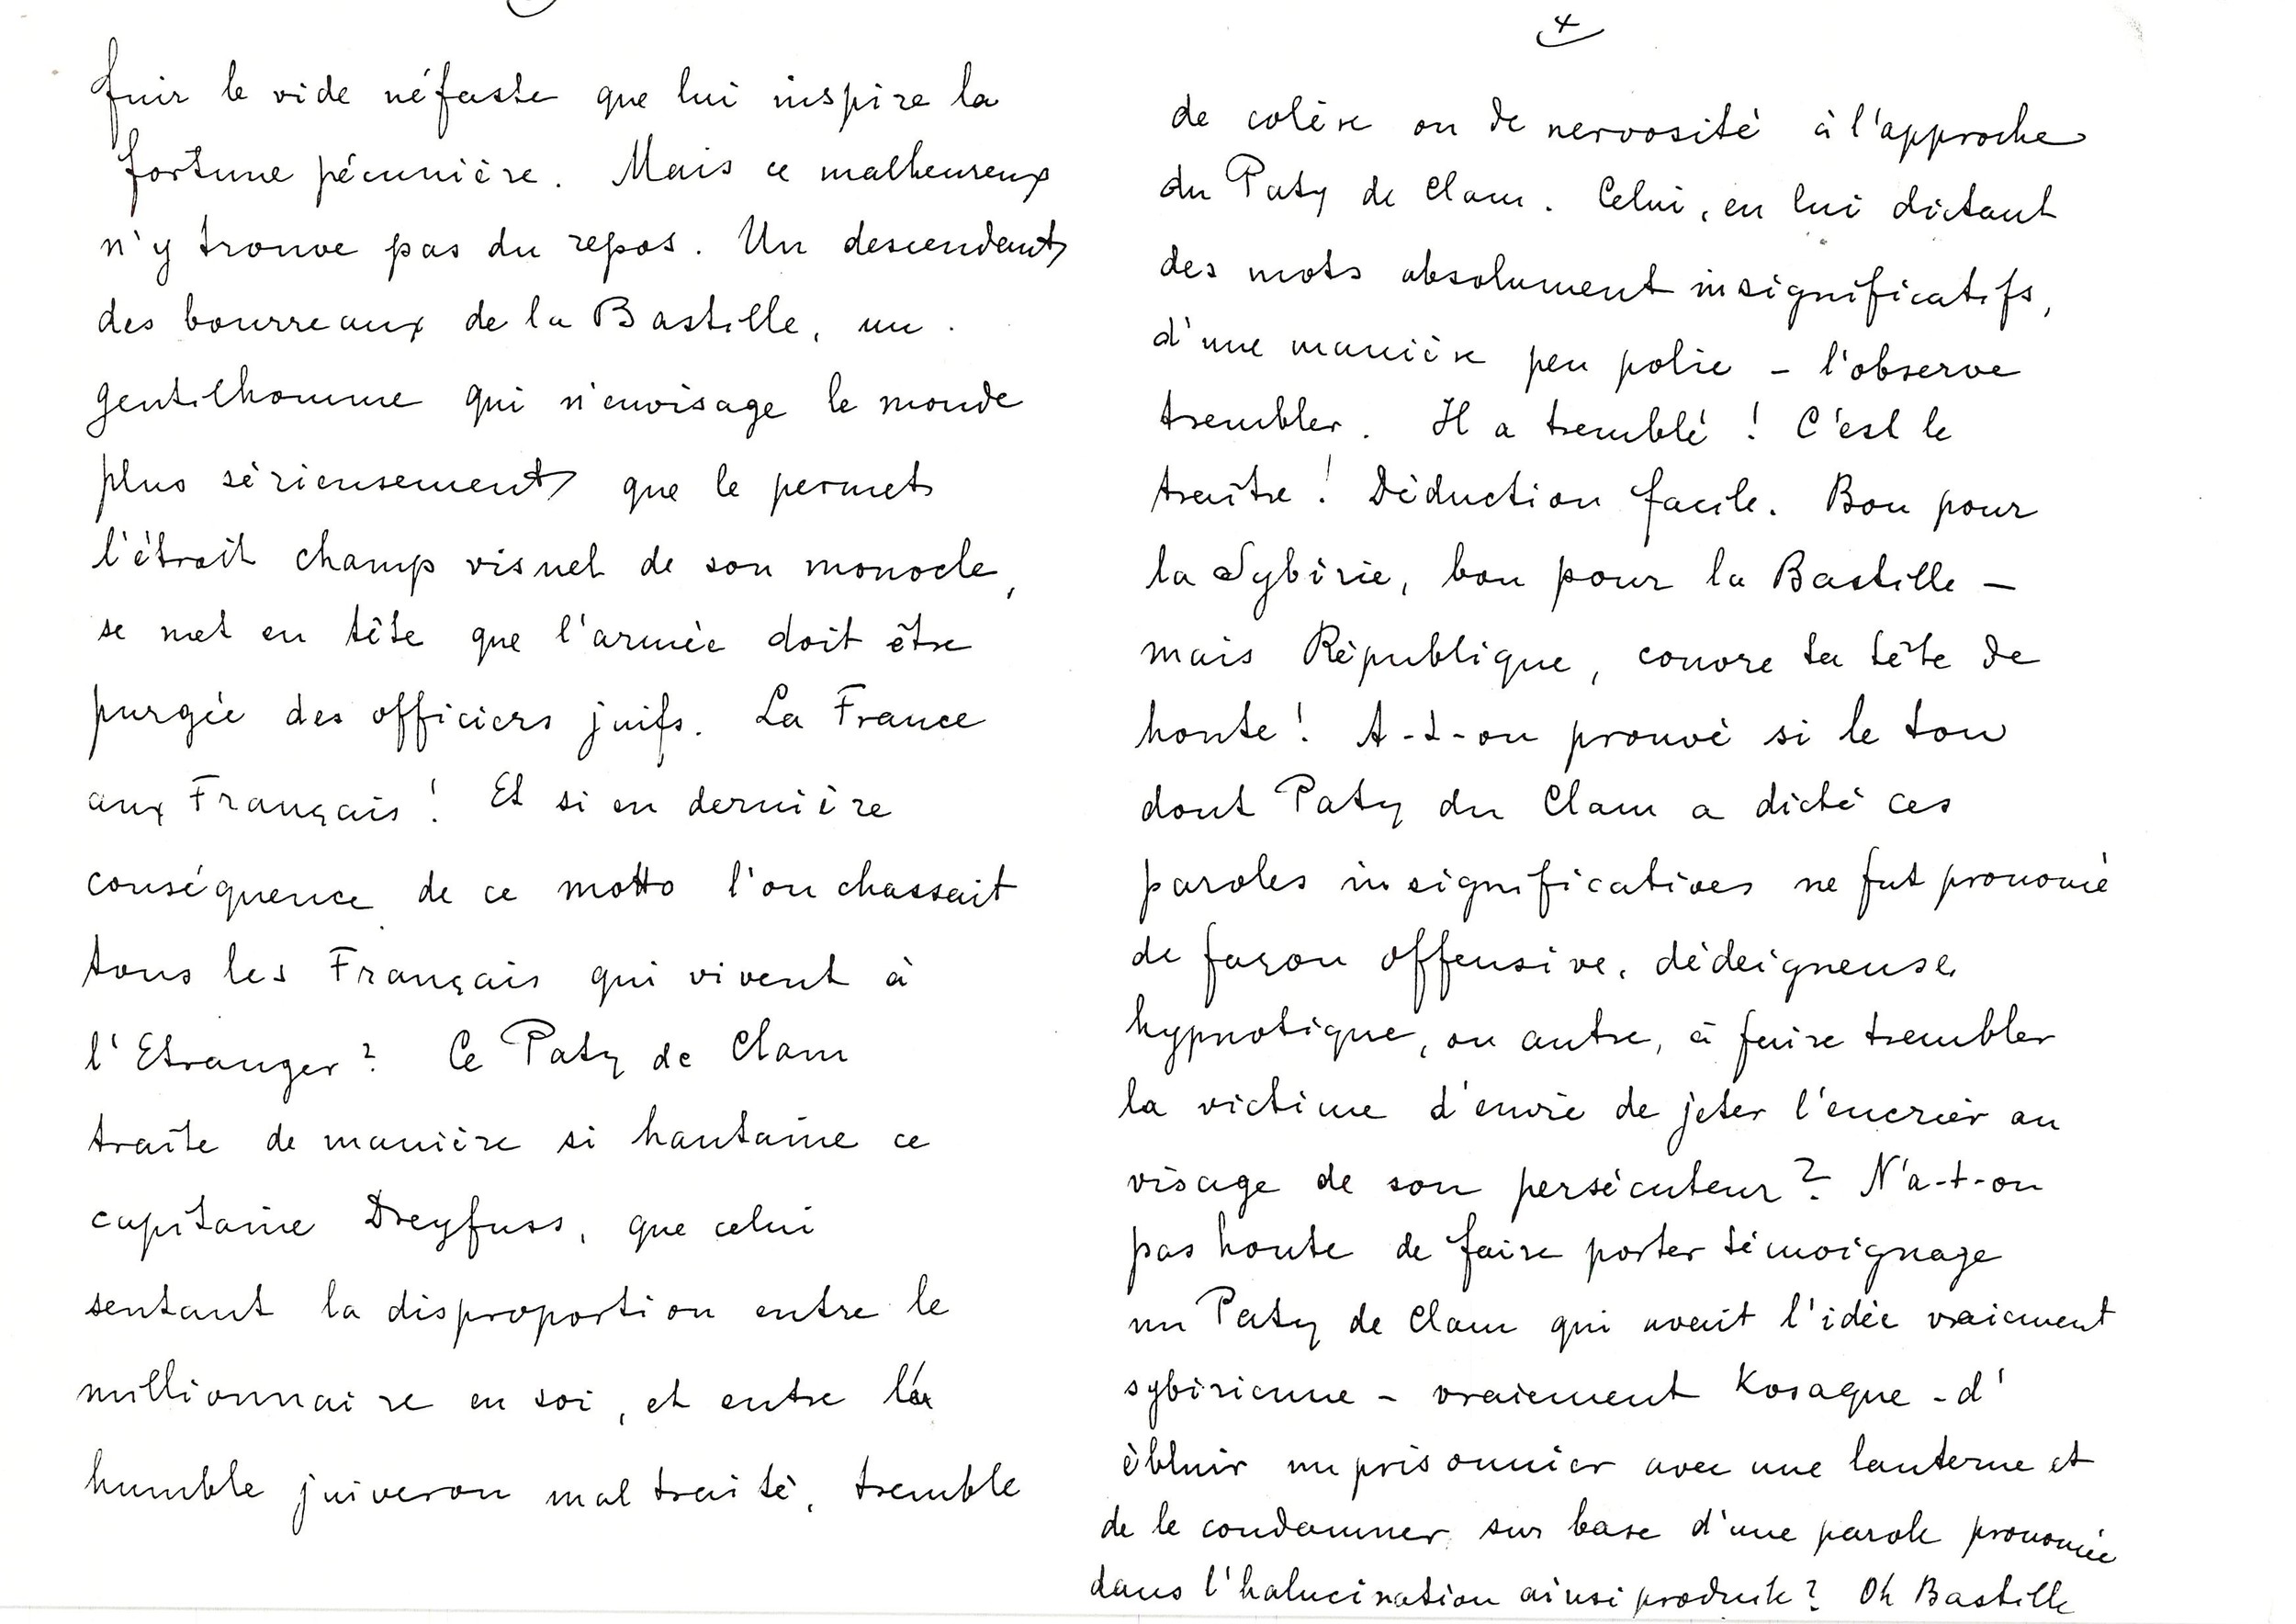 fuir le vide néfaste que lui inspire la
fortune pécunière. Mais ce malheureux
n'y trouve pas du repos. Un descendant
des bourreaux de la Bastille, un
gentilhomme qui n'envisage le monde
plus sérieusement que le permet
l'étroit champ visuel de son monocle,
se met en tête que l'armée doit être
purgée des officiers juifs. La France
aux Français! Et si en dernière
conséquence de ce motto l'on chassait
tous les Français qui vivent à
l'Etranger? Ce Paty de Clam
traite de manière si hautaine ce
capitaine Dreyfuss, que celui
sentant la disproportion entre le
millionnaire en soi, et entre
humble juiveron maltraité, tremble
4
de colère ou de nervosité à l'approche
du Paty de Clam. Celui, en lui dictant
des mots absolument insignificatifs,
d'une manière peu polie - l'observe
trembler. Il a tremblé! C'est le
traître! Déduction facile. Bon pour
la Sybirie, bon pour la Bastille -
mais République, couvre ta tête de
honte! A-t-on prouvé si le ton
dont Paty du Clam a dicté ces
paroles insignificatives ne fut prononcé
de façon offensive, dédeigneuse
hypnotique, ou autre, à faire trembler
la victime d'envie de jeter l'encrier au
visage de son persécuteur? N'a-t-on
pas honte de faire porter témoignage
un Paty de Clam qui avait l'idée vraiement
sybirienne - vraiement Kosaque - d'
ébluir un prisonnier avec une lanterne et
de le condamner sur base d'une parole prononcée
dans l'halucination ainsi produite? Oh Bastille